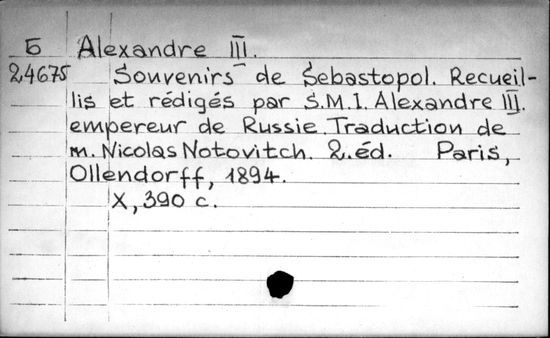 Б Alexandre III.
24675 Souvenirs de Sebastopol. Recueil-
lis et rédigés par S.M.I. Alexandre III.
empereur de Russie. Traduction de
m. Nicolas Notovitch. 2.éd. Paris,
Ollendorff, 1894.
X, 390 c.